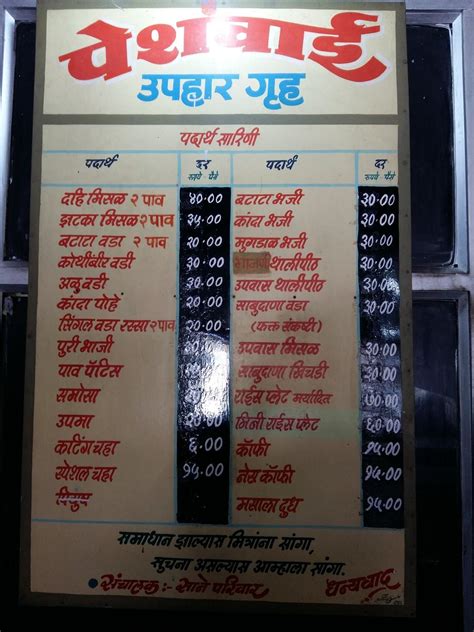 पेशवाई
उपहार गृह
पदार्थ सारिणी
पदार्थ दर रुपये पैसे पदार्थ दर रुपये पैसे
दहि मिसळ २ पाव ४०.०० बटाटा भजी ३०.००
झटका मिसळ २ पाव ३५.०० कांदा भजी ३०.००
बटाटा वडा २ पाव २०.०० मुगडाळ भजी ३०.००
कोथींबीर वडी थालीपीठ ३०.००
अळुवडी उपवास थालीपीठ ३०.००
कांदा पोहे २०.०० साबुदाणा वडा ३०.००
सिंगल वडा रस्सा २ पाव २०.०० (फक्त संकष्टी)
पुरी भाजी ३०.०० उपवास मिसळ ३०.००
पाव पॅटिस साबुदाणा खिचडी ३०.००
समोसा २०.०० राईस प्लेट मर्यादित ७०.००
उपमा २०.०० मिनी राईस प्लेट ६०.००
कटिंग चहा ६.०० कॉफी १५.००
स्पेशल चहा १५.०० नेस कॉफी १५.००
मसाला दुध १५.००
समाधान झाल्यास मित्रांना सांगा,
सुचना असल्यास आम्हाला सांगा.
संचालक :- साने परिवार धन्यवाद